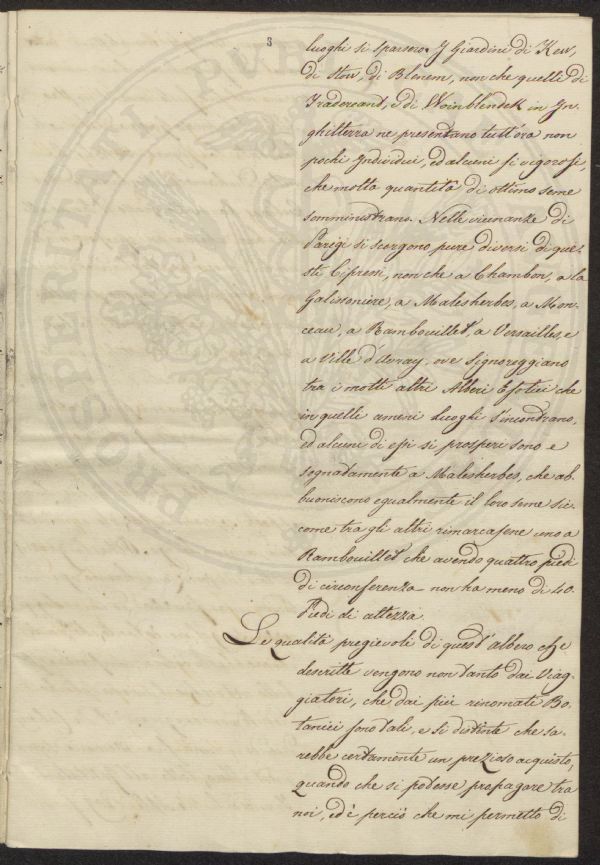 3
luoghi si sparsero. I Giardini di Kew,
di Stow, di Blenem, non che quelli di
Tradescant, e di Woinblendek in In-
ghilterra ne presentano tutt'ora non
pochi Individui, ed alcuni si vigorosi,
che molta quantità di ottimo seme
somministrano. Nelle vicinanze di
Parigi si scorgono pure diversi di que-
sti Cipressi, non che a Chambon, a la
Galissonière, a Malesherbes, a Mon-
ceau, a Rambouillet, a Versailles, e
a Ville d'Avray, ove signoreggiano
tra i molti altri Alberi Esotici che
in quelli ameni luoghi s'incontrano,
ed alcuni di essi si prosperi sono e
segnadamente a Malesherbes, che ab-
buoniscono egualmente il loro seme sic-
come tra gli altri rimarcasene uno a
Rambouillet che avendo quattro piedi
di circonferenza non ha meno di 40.
Piedi di altezza
Le qualità pregievoli di quest'albero che
descritte vengono non tanto dai Viag-
giatori, che dai più rinomati Bo-
tanici sono tali, e si distinte che sa-
rebbe certamente un prezioso acquisto,
quando che si potesse propagare tra
noi, ed è perciò che mi permetto di
PROSPERITATI PUBL